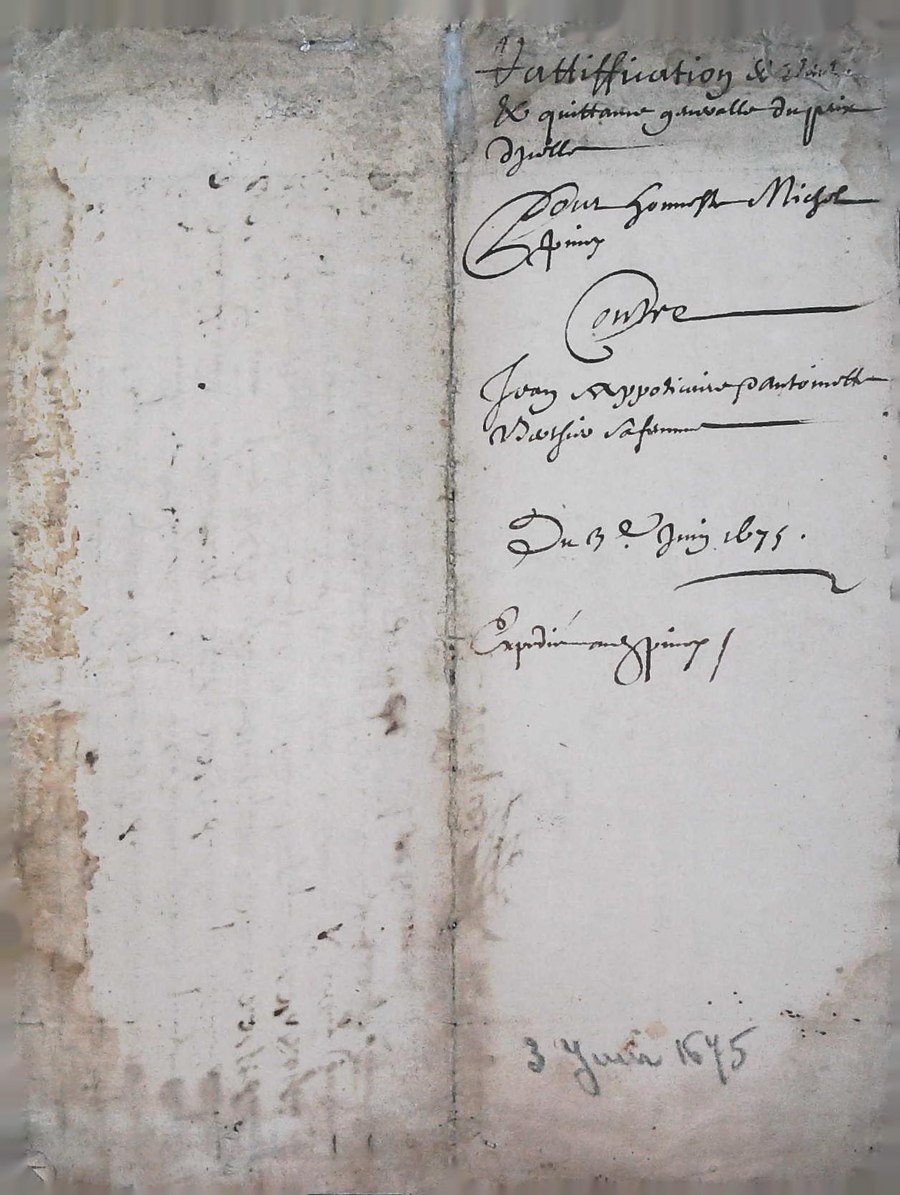 Rattiffication de
& quittance generalle du prix
d'jcelle
Pour honneste Michel
Spinex
Contre
Jean Appoticaire & antoinette
Berthier sa femme
Du 3.e Juin 1675.
Expedié aud Spinex /
3 Juin 1675